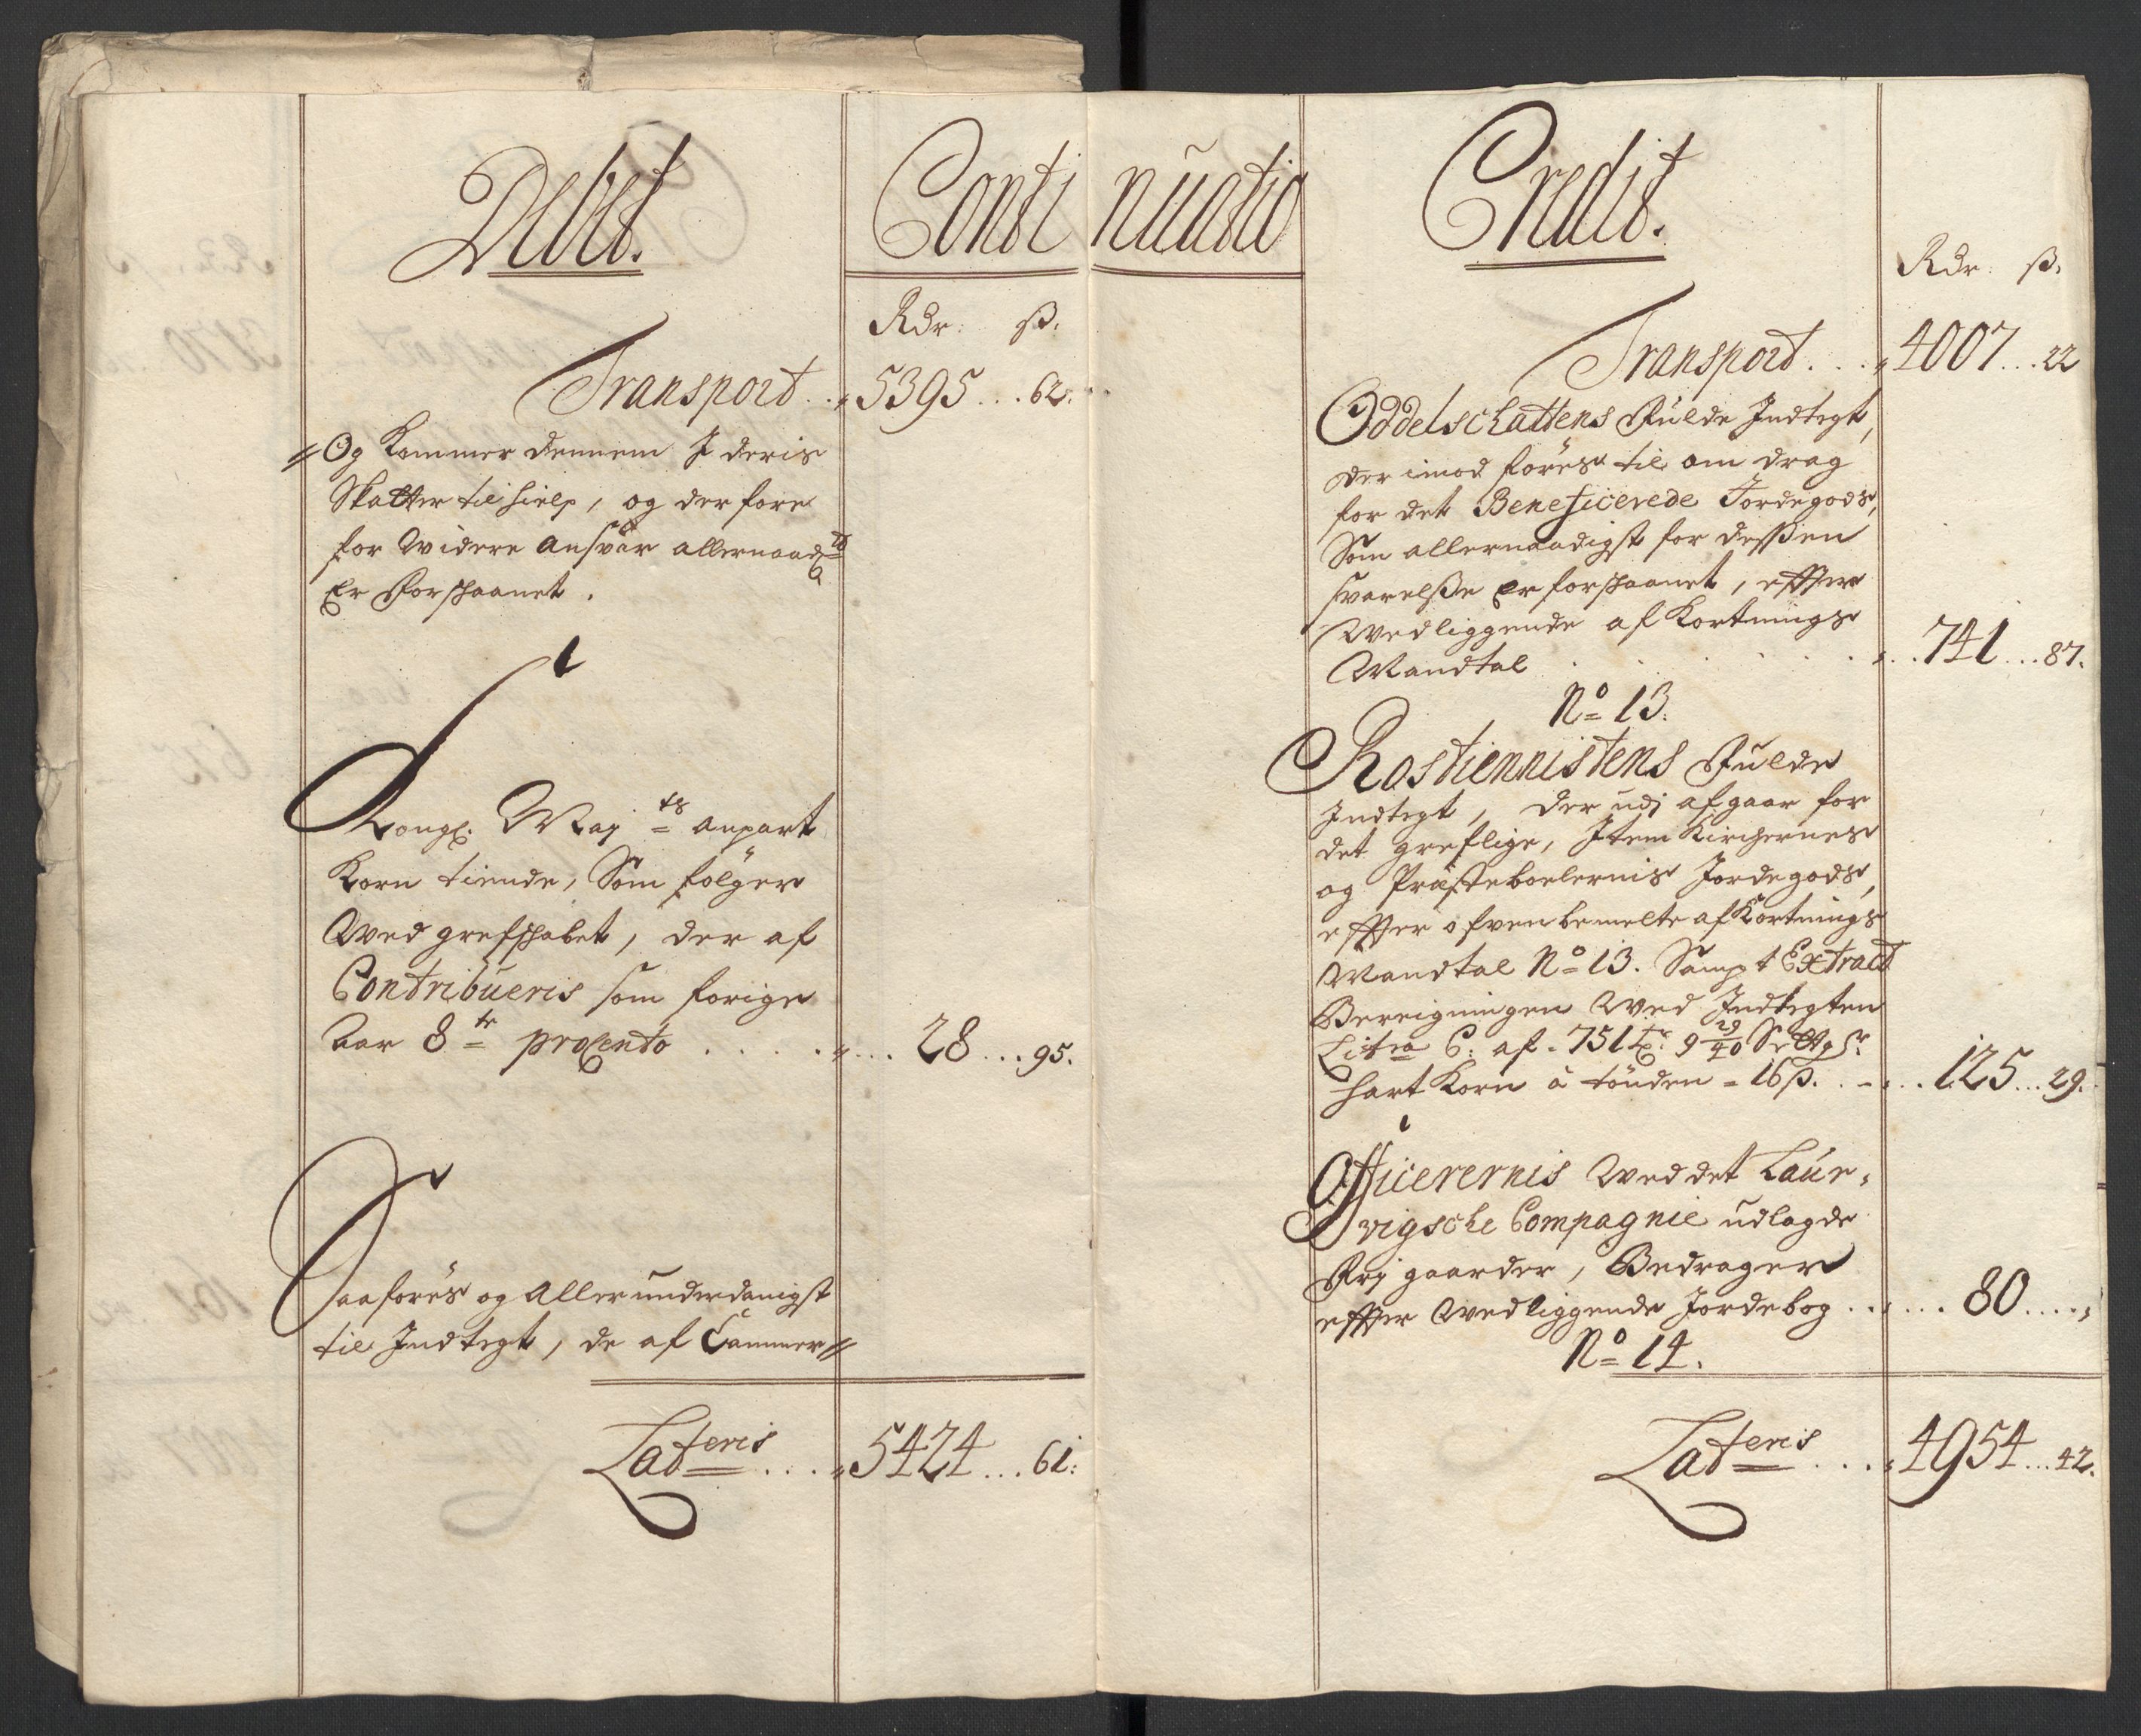 Debet.
Conti nuatio
Rdr: ß.
Transport . . 5395 . . . 62.
Og Kommer dennem I deris
Skatter til hielp, og der fore
for Widere Ansvar allernaadgst
Er Forskaanet.
Kongl. Maytz anpart
Korn tiende, Som fölger
Wed grefskabet, der af
Contribueris som forige
Aar 8te procento . . . . . 28 . . . 95.
Saaföres og Allerunderdanigst
til Indtegt, de af Cammer
Lateris . . . 5424 . . . 61:
Credit.
Rdr: ß.
Transport . . . 4007 . . . 22
Oddelschattens Fulde Indtegt,
der imod föres til om drag
for det Beneficerede Jordegods,
Som allernaadigst for dessen
svarelsse er forskaanet, efter
Wedliggende af Kortnings
Mandtal . . . . . . . . 741 . . . 87.
No 13.
Rostiennistens Fulde
Indtegt, der udj afgaar for
det greflige, Item Kirchernes
og Præsteboelernis Jordegods,
efter ofvenbemelte af Kortnings
Mandtal No 13. Sampt Extract
Bereigningen Wed Indtegten
Litra C: af 751 tr. 9 29/40 Settgr
hart Korn á tönden = 16 ß. . . . . 125 . . . 29.
Officerernis Wed det Laur,
vigsche Compagnie udlagde
Frj gaarder, Bedrager
efter Wedliggende Jordebog . . . . . . 80 . . . . ,
No 14.
Lateris . . . 4954 . . . 42.